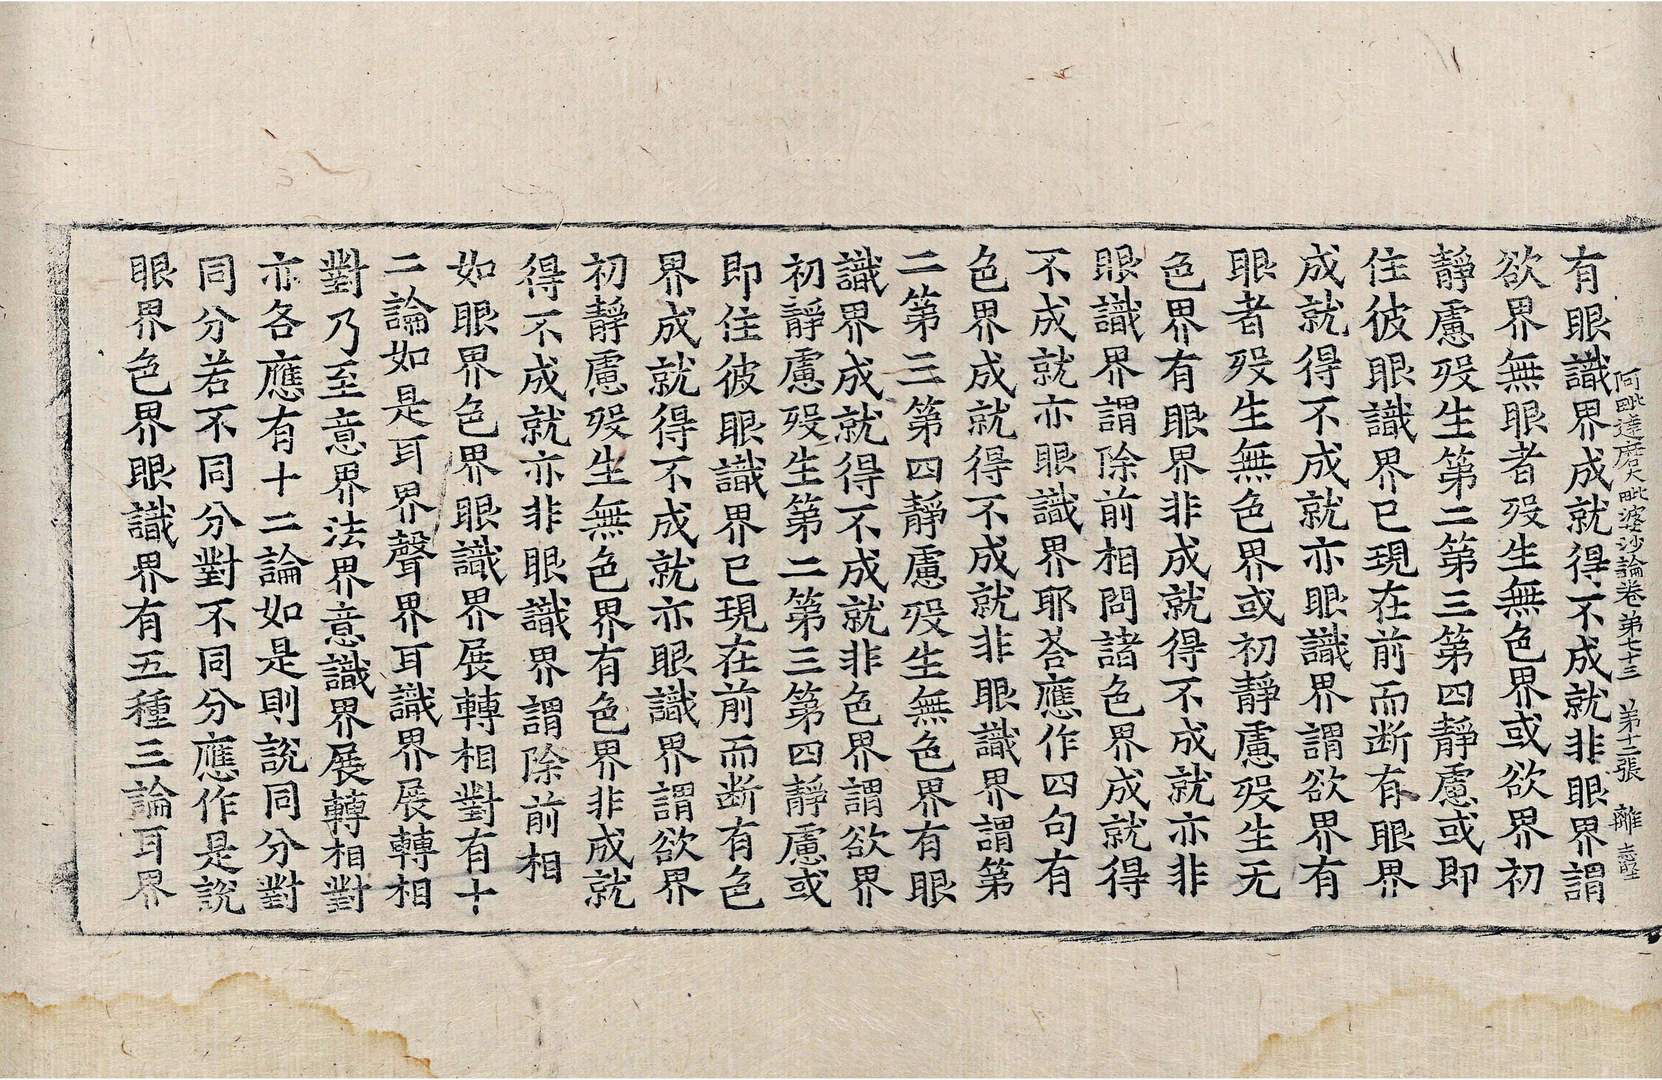 阿毗達磨大毗婆沙論卷第七十三　第十二張　離
有眼識界成就得不成就非眼界謂
欲界無眼者歿生無色界或欲界初
靜慮歿生第二第三第四靜慮或即
住彼眼識界已現在前而断有眼界
成就得不成就亦眼識界謂欲界有
眼者歿生無色界或初靜慮歿生无
色界有眼界非成就得不成就亦非
眼識界謂除前相問諸色界成就得
不成就亦眼識界耶荅應作四句有
色界成就得不成就非眼識界謂第
二第三第四靜慮歿生無色界有眼
識界成就得不成就非色界謂欲界
初靜慮歿生第二第三第四靜慮或
即住彼眼識界已現在前而断有色
界成就得不成就亦眼識界謂欲界
初靜慮歿生無色界有色界非成就
得不成就亦非眼識界謂除前相
如眼界色界眼識界展轉相對有十
二論如是耳界聲界耳識界展轉相
對乃至意界法界意識界展轉相對
亦各應有十二論如是則說同分對
同分若不同分對不同分應作是說
眼界色界眼識界有五種三論耳界